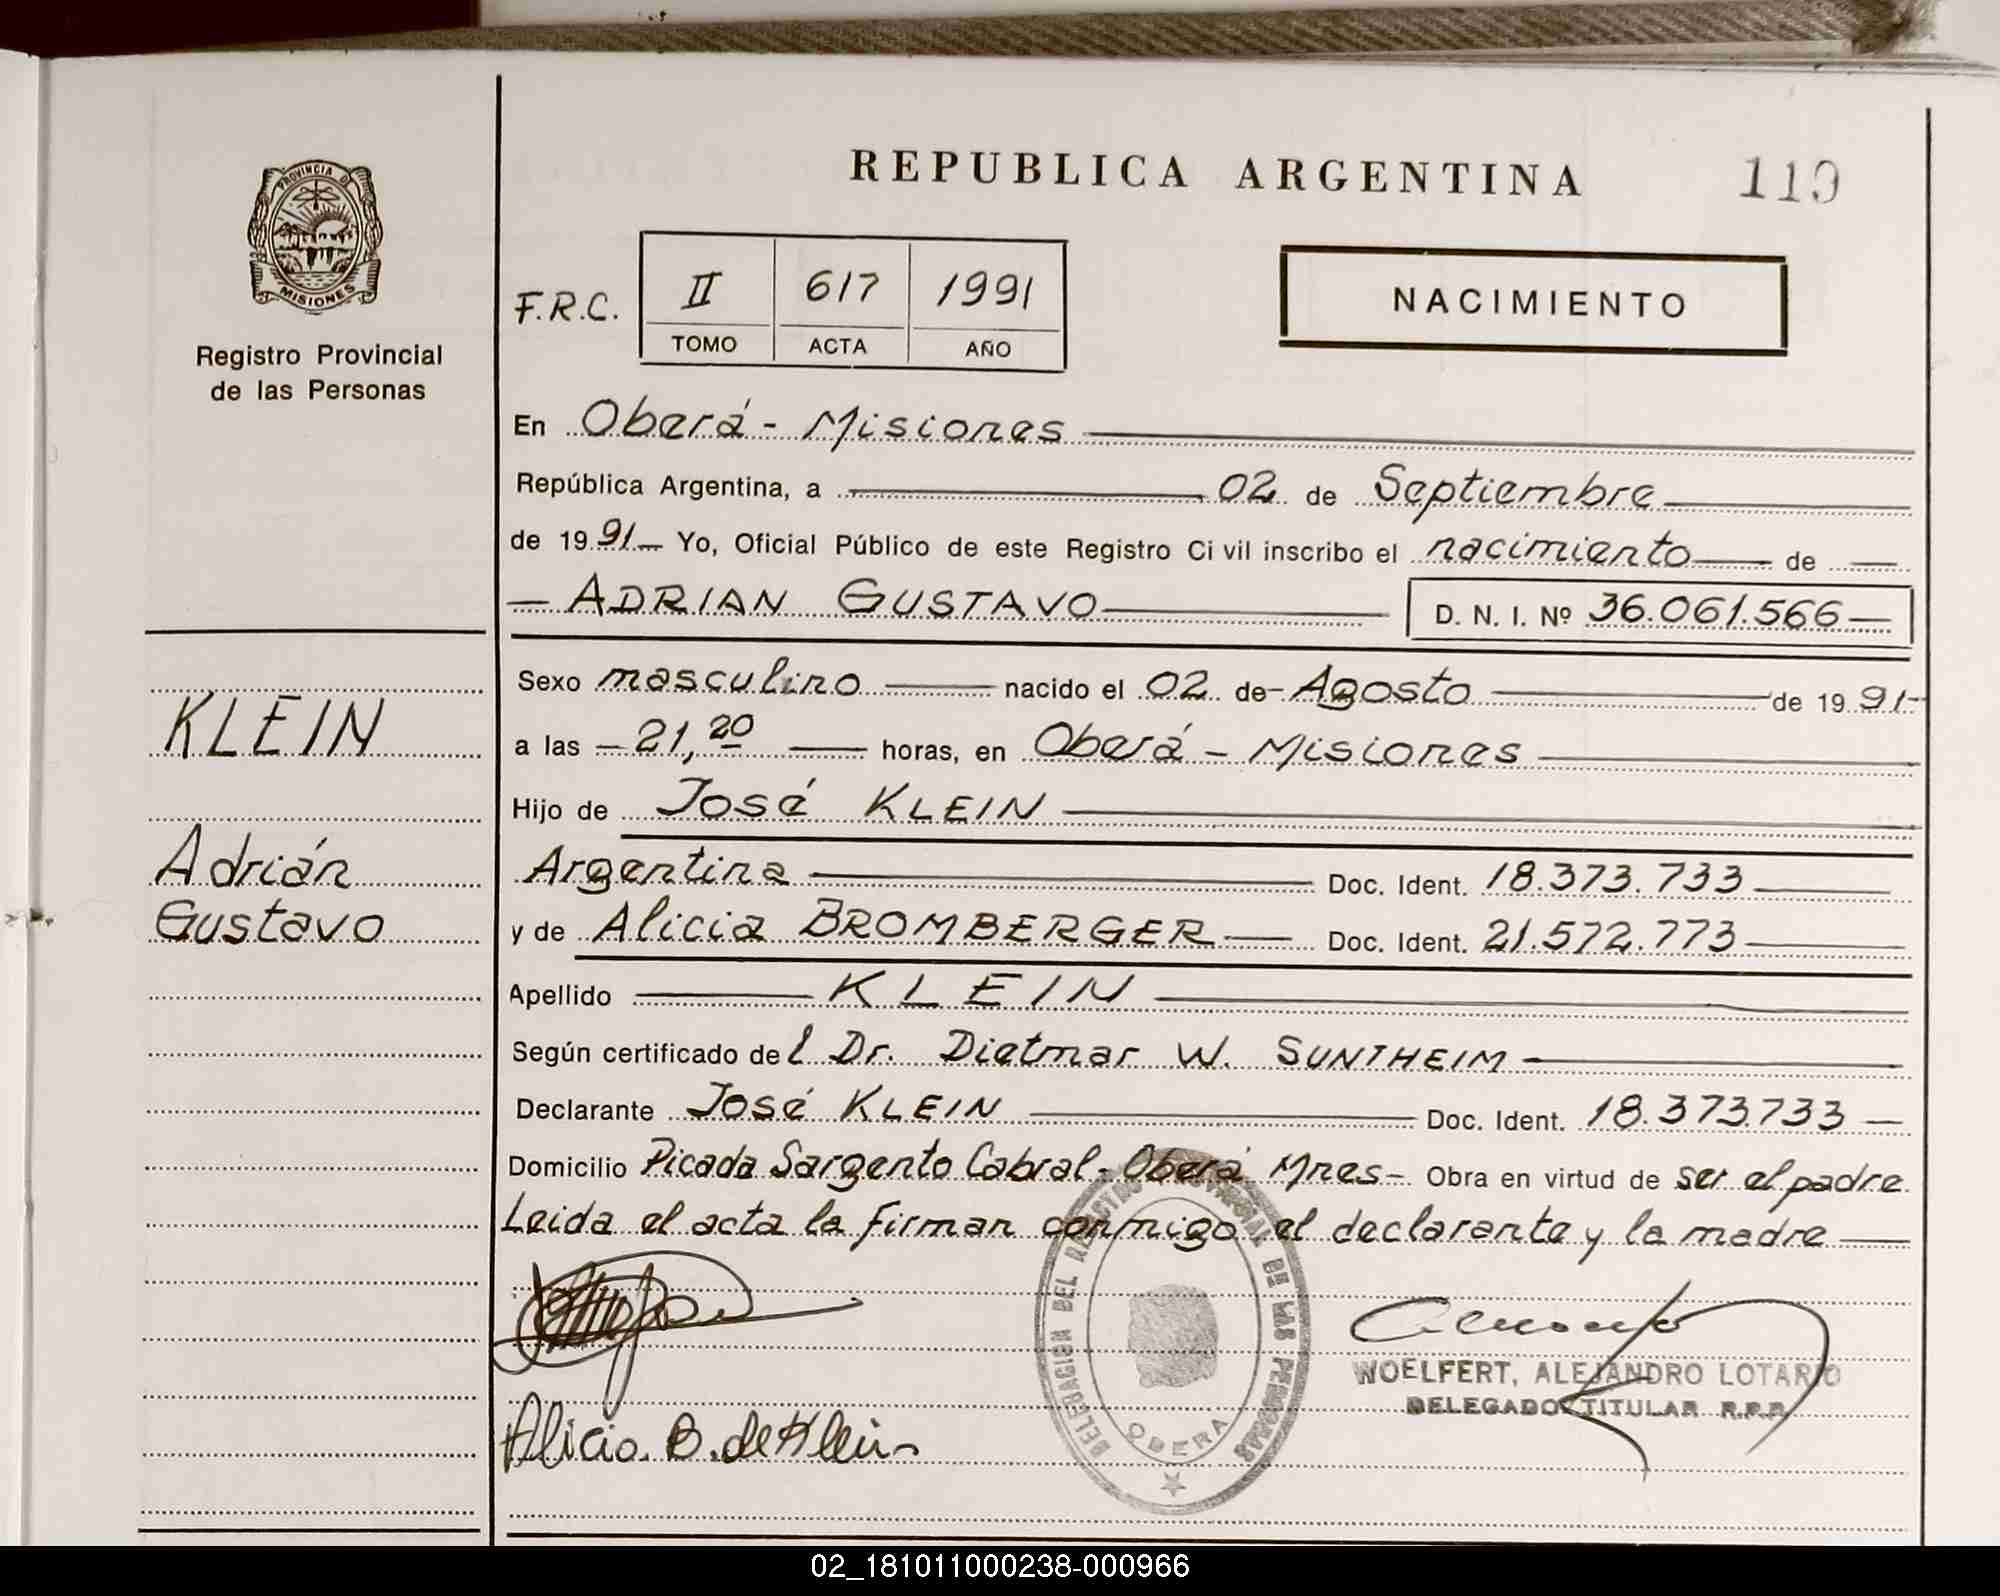 REPUBLICA ARGENTINA
119
PROVINCIA DE
MISIONES
Registro Provincial
de las Personas
F.R.C.
II 617 1991
TOMO ACTA AÑO
NACIMIENTO
En Oberá - Misiones
República Argentina, a 02 de Septiembre
de 1991 Yo, Oficial Público de este Registro Civil inscribo el nacimiento de
ADRIAN GUSTAVO D. N. I. Nº 36.061.566
Sexo masculino nacido el 02 de Agosto de 1991
a las 21,20 horas, en Oberá - Misiones
Hijo de José KLEIN
Argentina Doc. Ident. 18.373.733
y de Alicia BROMBERGER Doc. Ident. 21.572.773
Apellido KLEIN
Según certificado del Dr. Dietmar W. SUNTHEIM
Declarante José KLEIN Doc. Ident. 18.373733
Domicilio Picada Sargento Cabral - Oberá Mnes - Obra en virtud de ser el padre
Leida el acta la firman conmigo el declarante y la madre
KLEIN
Adrián
Gustavo
DELEGACION DEL REGISTRO PROVINCIAL DE LAS PERSONAS
OBERA
WOELFERT, ALEJANDRO LOTARIO
DELEGADO TITULAR R.P.P.
Alicia B. de Klein
02_181011000238-000966